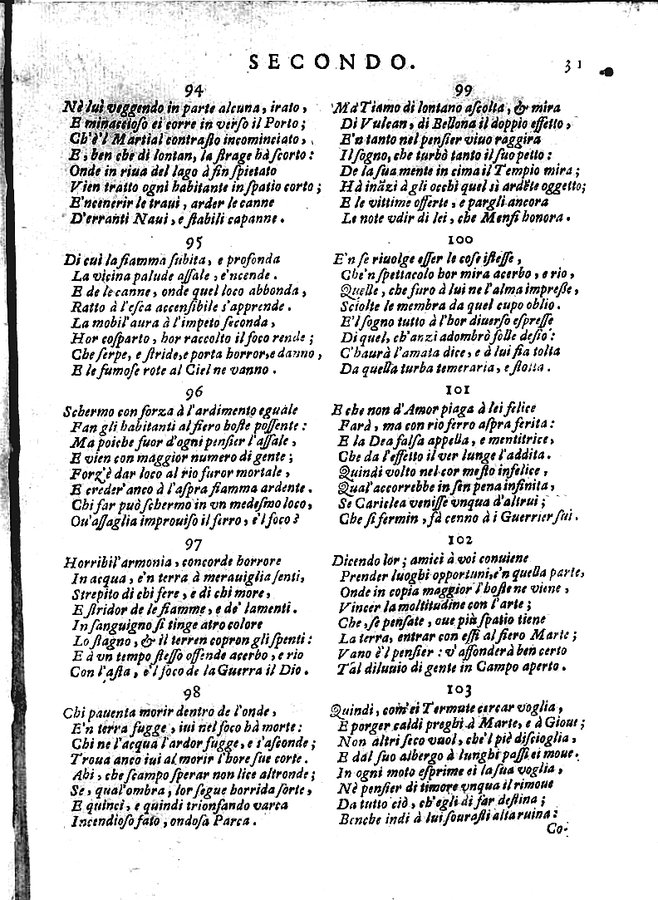 SECONDO. 31
94
Nè lui veggendo in parte alcuna, irato,
E minaccioso ei corre in verso il Porto;
Ch'è'l Martial contrasto incominciato,
E, ben che di lontan, la strage hà scorto:
Onde in riva del lago à fin spietato
Vien tratto ogni habitante in spatio corto;
E'ncenerir le travi, arder le canne
D'erranti Navi, e stabili capanne.
95
Di cui la fiamma subita, e profonda
La vicina palude assale, e'ncende.
E de le canne, onde quel loco abbonda,
Ratto à l'esca accensibile s'apprende.
La mobil'aura à l'impeto seconda,
Hor cosparto, hor raccolto il foco rende;
Che serpe, e stride, e porta horror, e danno,
E le fumose rote al Ciel ne vanno.
96
Schermo con forza à l'ardimento eguale
Fan gli habitanti al fiero hoste possente:
Ma poiche fuor d'ogni pensier l'assale,
E vien con maggior numero di gente;
Forz'è dar loco al rio furor mortale,
E creder'anco à l'aspra fiamma ardente.
Chi far può schermo in vn medesmo loco,
Ou'assaglia improuiso il ferro, e'l foco?
97
Horribil'armonia, concorde horrore
In acqua, e'n terra à merauiglia senti,
Strepito di chi fere, e di chi more,
E stridor de le fiamme, e de' lamenti.
In sanguigno si tinge atro colore
Lo stagno, & il terren copron gli spenti:
E à vn tempo stesso offende acerbo, e rio
Con l'asta, e'l foco de la Guerra il Dio.
98
Chi pauenta morir dentro de l'onde,
E'n terra fugge, iui nel foco hà morte:
Chi ne l'acqua l'ardor fugge, e s'asconde;
Troua anco iui al morir l'hore sue corte.
Ahi, che scampo sperar non lice altronde;
Se, qual'ombra, lor segue horrida sorte,
E quinci, e quindi trionfando varca
Incendioso fato, ondosa Parca.
99
Ma Tiamo di lontano ascolta, & mira
Di Vulcan, di Bellona il doppio effetto,
E'n tanto nel pensier viuo raggira
Il sogno, che turbò tanto il suo petto:
De la sua mente in cima il Tempio mira;
Hà inãzi à gli occhi quel sì ardẽte oggetto;
E le vittime offerte, e pargli ancora
Le note vdir di lei, che Menfi honora.
100
E'n se riuolge esser le cose istesse,
Che'n spettacolo hor mira acerbo, e rio,
Quelle, che furo à lui ne l'alma impresse,
Sciolte le membra da quel cupo oblio.
E'l sogno tutto à l'hor diuerso espresse
Di quel, ch'anzi adombrò folle desio:
C'haurà l'amata dice, e à lui fia tolta
Da quella turba temeraria, e stolta.
101
E che non d'Amor piaga à lei felice
Farà, ma con rio ferro aspra ferita:
E la Dea falsa appella, e mentitrice,
Che da l'effetto il ver lunge l'addita.
Quindi volto nel cor mesto infelice,
Qual'accorrebbe in sen pena infinita,
Se Cariclea venisse vnqua d'altrui;
Che si fermin, fà cenno à i Guerrier sui.
102
Dicendo lor; amici à voi conuiene
Prender luoghi opportuni, e'n quella parte,
Onde in copia maggior l'hoste ne viene,
Vincer la moltitudine con l'arte;
Che, se pensate, oue più spatio tiene
La terra, entrar con essi al fiero Marte;
Vano è'l pensier: v'affonderà ben certo
Tal diluuio di gente in Campo aperto.
103
Quindi, com'ei Termute cercar voglia,
E porger caldi preghi à Marte, e à Gioue;
Non altri seco vuol, che'l piè discioglia,
E dal suo albergo à lunghi passi ei moue.
In ogni moto esprime ei la sua voglia,
Nè pensier di timore vnqua il rimoue
Da tutto ciò, ch'egli di far destina;
Benche indi à lui sourasti alta ruina:
Co-